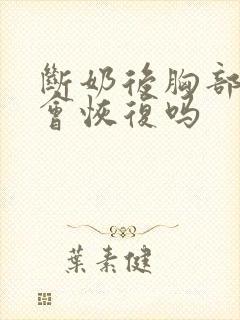 斷奶後胸部
會恢復吗
葉素健